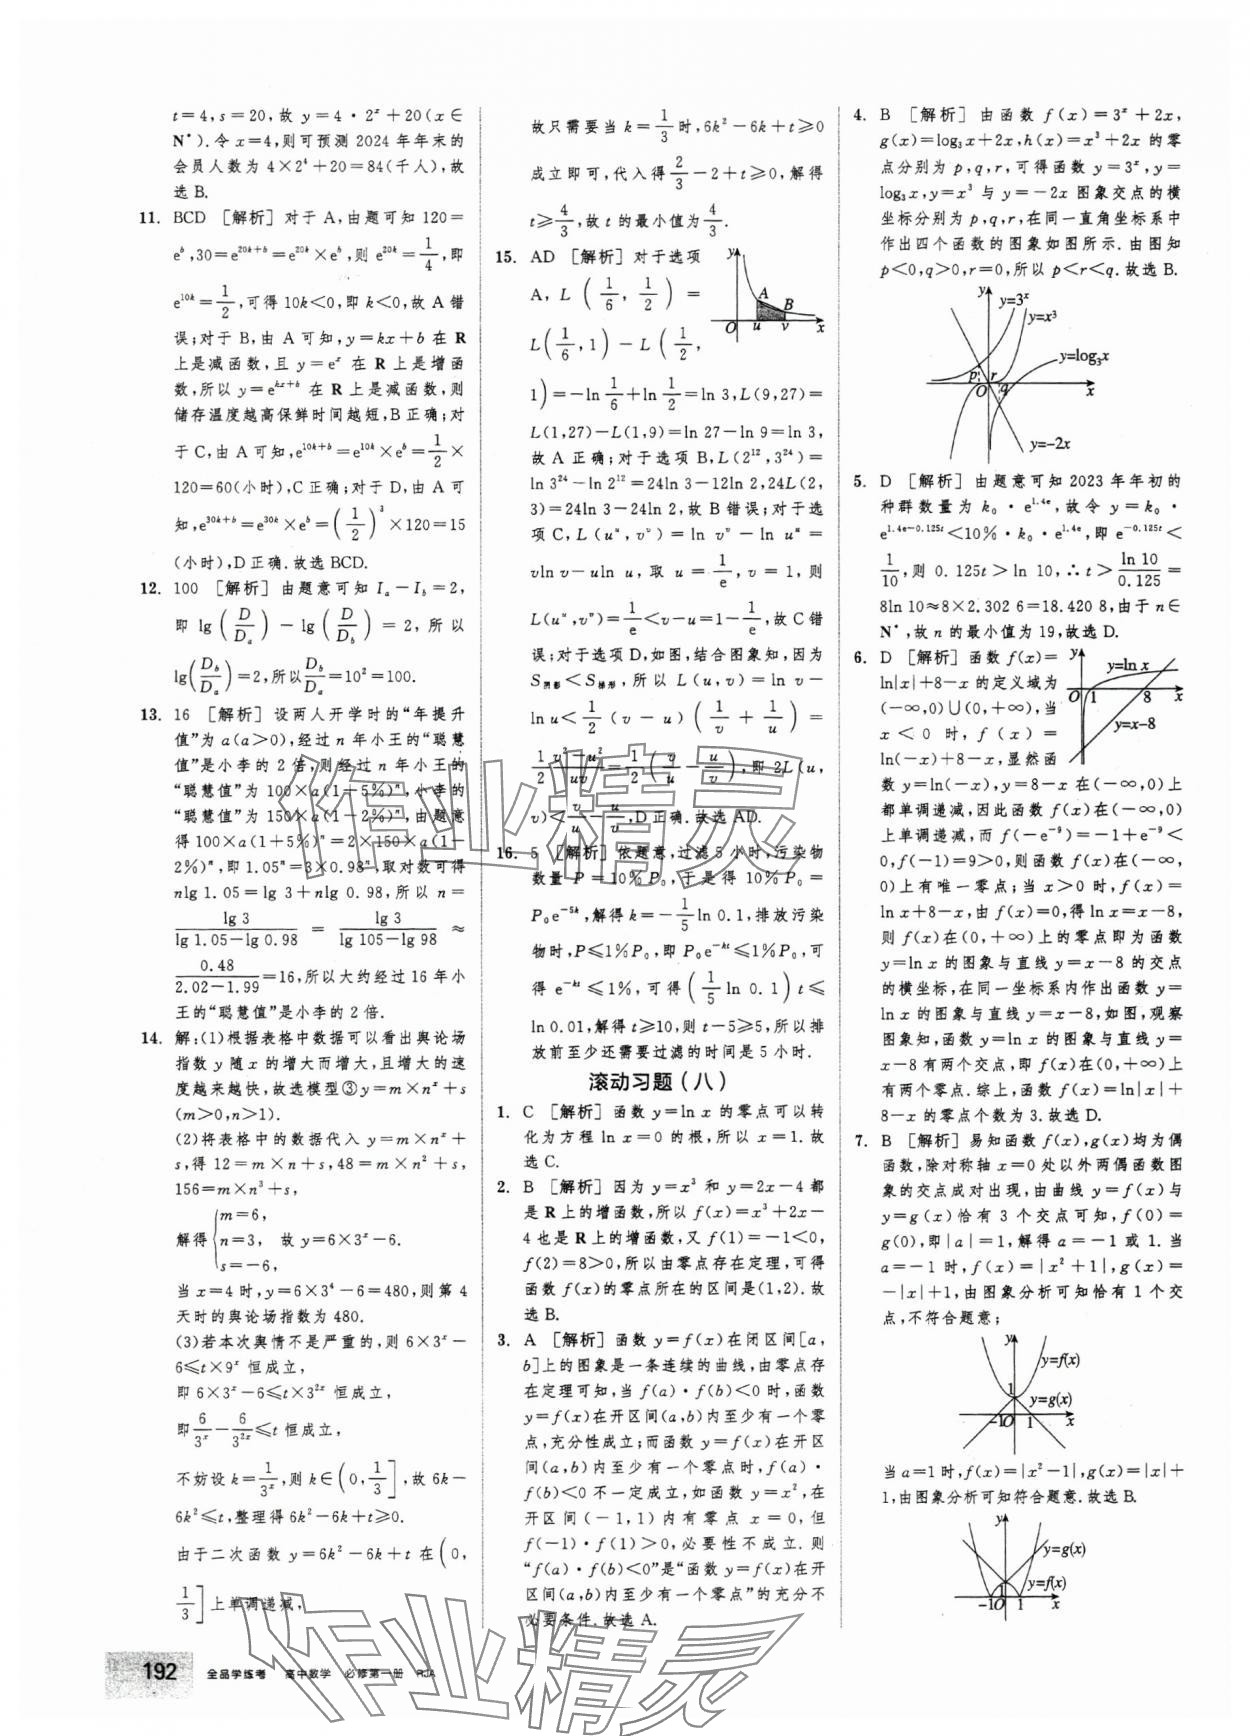 t=4,s=20,故 y=4·2ˣ+20(x∈
N*).令 x=4,则可预测 2024 年年末的
会员人数为 4×2⁴+20=84(千人),故
选 B.
11. BCD [解析] 对于 A,由题可知 120=
eᵇ,30=e^{20k+b}=e^{20k}×eᵇ,则 e^{20k}=1/4,即
e^{10k}=1/2,可得 10k<0,即 k<0,故 A 错
误;对于 B,由 A 可知,y=kx+b 在 R
上是减函数,且 y=eˣ 在 R 上是增函
数,所以 y=e^{kx+b} 在 R 上是减函数,则
储存温度越高保鲜时间越短,B 正确;对
于 C,由 A 可知,e^{10k+b}=e^{10k}×eᵇ=1/2×
120=60(小时),C 正确;对于 D,由 A 可
知,e^{30k+b}=e^{30k}×eᵇ=(1/2)³×120=15
(小时),D 正确.故选 BCD.
12. 100 [解析] 由题意可知 Iₐ-I_b=2,
即 lg(D/Dₐ)-lg(D/D_b)=2,所以
lg(D_b/Dₐ)=2,所以 D_b/Dₐ=10²=100.
13. 16 [解析] 设两人开学时的“年提升
值”为 a(a>0),经过 n 年小王的“聪慧
值”是小李的 2 倍,则经过 n 年小王的
“聪慧值”为 100×a(1+5%)ⁿ,小李的
“聪慧值”为 150×a(1-2%)ⁿ,由题意
得 100×a(1+5%)ⁿ=2×150×a(1-
2%)ⁿ,即 1.05ⁿ=3×0.98ⁿ,取对数可得
nlg 1.05=lg 3+nlg 0.98,所以 n=
lg 3/(lg 1.05-lg 0.98) = lg 3/(lg 105-lg 98) ≈
0.48/(2.02-1.99)=16,所以大约经过 16 年小
王的“聪慧值”是小李的 2 倍.
14. 解:(1)根据表格中数据可以看出舆论场
指数 y 随 x 的增大而增大,且增大的速
度越来越快,故选模型③y=m×nˣ+s
(m>0,n>1).
(2)将表格中的数据代入 y=m×nˣ+
s,得 12=m×n+s,48=m×n²+s,
156=m×n³+s,
解得{m=6, n=3, s=-6, 故 y=6×3ˣ-6.
当 x=4 时,y=6×3⁴-6=480,则第 4
天时的舆论场指数为 480.
(3)若本次舆情不是严重的,则 6×3ˣ-
6≤t×9ˣ 恒成立,
即 6×3ˣ-6≤t×3²ˣ 恒成立,
即 6/3ˣ-6/3²ˣ≤t 恒成立,
不妨设 k=1/3ˣ,则 k∈(0,1/3],故 6k-
6k²≤t,整理得 6k²-6k+t≥0.
由于二次函数 y=6k²-6k+t 在(0,
1/3]上单调递减,
故只需要当 k=1/3时,6k²-6k+t≥0
成立即可,代入得 2/3-2+t≥0,解得
t≥4/3,故 t 的最小值为 4/3.
15. AD [解析] 对于选项
A, L(1/6,1/2)=
L(1/6,1)-L(1/2,
1)=-ln 1/6+ln 1/2=ln 3,L(9,27)=
L(1,27)-L(1,9)=ln 27-ln 9=ln 3,
故 A 正确;对于选项 B,L(2¹²,3²⁴)=
ln 3²⁴-ln 2¹²=24ln 3-12ln 2,24L(2,
3)=24ln 3-24ln 2,故 B 错误;对于选
项 C,L(uᵘ,vᵛ)=ln vᵛ-ln uᵘ=
vln v-uln u,取 u=1/e,v=1,则
L(uᵘ,vᵛ)=1/e<v-u=1-1/e,故 C 错
误;对于选项 D,如图,结合图象知,因为
S阴影<S梯形,所以 L(u,v)=ln v-
ln u<1/2(v-u)(1/v+1/u)=
1/2·(v²-u²)/uv=1/2(v/u-u/v),即 2L(u,
v)<v/u-u/v,D 正确.故选 AD.
y
A
B
O
u
v
x
16. 5 [解析] 依题意,过滤 5 小时,污染物
数量 P=10%P₀,于是得 10%P₀=
P₀e⁻⁵ᵏ,解得 k=-1/5ln 0.1,排放污染
物时,P≤1%P₀,即 P₀e⁻ᵏᵗ≤1%P₀,可
得 e⁻ᵏᵗ≤1%,可得(1/5ln 0.1)t≤
ln 0.01,解得 t≥10,则 t-5≥5,所以排
放前至少还需要过滤的时间是 5 小时.
滚动习题(八)
1. C [解析] 函数 y=ln x 的零点可以转
化为方程 ln x=0 的根,所以 x=1.故
选 C.
2. B [解析] 因为 y=x³ 和 y=2x-4 都
是 R 上的增函数,所以 f(x)=x³+2x-
4 也是 R 上的增函数,又 f(1)=-1<0,
f(2)=8>0,所以由零点存在定理,可得
函数 f(x)的零点所在的区间是(1,2).故
选 B.
3. A [解析] 函数 y=f(x)在闭区间[a,
b]上的图象是一条连续的曲线,由零点存
在定理可知,当 f(a)·f(b)<0 时,函数
y=f(x)在开区间(a,b)内至少有一个零
点,充分性成立;而函数 y=f(x)在开区
间(a,b)内至少有一个零点时,f(a)·
f(b)<0 不一定成立,如函数 y=x²,在
开区间(-1,1)内有零点 x=0,但
f(-1)·f(1)>0,必要性不成立.则
“f(a)·f(b)<0”是“函数 y=f(x)在开
区间(a,b)内至少有一个零点”的充分不
必要条件.故选 A.
4. B [解析] 由函数 f(x)=3ˣ+2x,
g(x)=log₃x+2x,h(x)=x³+2x 的零
点分别为 p,q,r,可得函数 y=3ˣ,y=
log₃x,y=x³ 与 y=-2x 图象交点的横
坐标分别为 p,q,r,在同一直角坐标系中
作出四个函数的图象如图所示.由图知
p<0,q>0,r=0,所以 p<r<q.故选 B.
y
y=3ˣ
y=x³
y=log₃x
p
r
O
q
x
y=-2x
5. D [解析] 由题意可知 2023 年年初的
种群数量为 k₀·e^{1.4e},故令 y=k₀·
e^{1.4e-0.125t}<10%·k₀·e^{1.4e},即 e^{-0.125t}<
1/10,则 0.125t>ln 10,∴t>ln 10/0.125=
8ln 10≈8×2.302 6=18.420 8,由于 n∈
N*,故 n 的最小值为 19,故选 D.
6. D [解析] 函数 f(x)=
ln|x|+8-x 的定义域为
(-∞,0)∪(0,+∞),当
x<0 时,f(x)=
ln(-x)+8-x,显然函
数 y=ln(-x),y=8-x 在(-∞,0)上
都单调递减,因此函数 f(x)在(-∞,0)
上单调递减,而 f(-e⁻⁹)=-1+e⁻⁹<
0,f(-1)=9>0,则函数 f(x)在(-∞,
0)上有唯一零点;当 x>0 时,f(x)=
ln x+8-x,由 f(x)=0,得 ln x=x-8,
则 f(x)在(0,+∞)上的零点即为函数
y=ln x 的图象与直线 y=x-8 的交点
的横坐标,在同一坐标系内作出函数 y=
ln x 的图象与直线 y=x-8,如图,观察
图象知,函数 y=ln x 的图象与直线 y=
x-8 有两个交点,即 f(x)在(0,+∞)上
有两个零点.综上,函数 f(x)=ln|x|+
8-x 的零点个数为 3.故选 D.
y
y=ln x
O
1
8
x
y=x-8
7. B [解析] 易知函数 f(x),g(x)均为偶
函数,除对称轴 x=0 处以外两偶函数图
象的交点成对出现,由曲线 y=f(x)与
y=g(x)恰有 3 个交点可知,f(0)=
g(0),即|a|=1,解得 a=-1 或 1.当
a=-1 时,f(x)=|x²+1|,g(x)=
-|x|+1,由图象分析可知恰有 1 个交
点,不符合题意;
y
y=f(x)
1
y=g(x)
-1
O
1
x
当 a=1 时,f(x)=|x²-1|,g(x)=|x|+
1,由图象分析可知符合题意.故选 B.
y
y=g(x)
y=f(x)
-1
O
1
x
192 全品学练考 高中数学 必修第一册 RJA
作业精灵
作业精灵